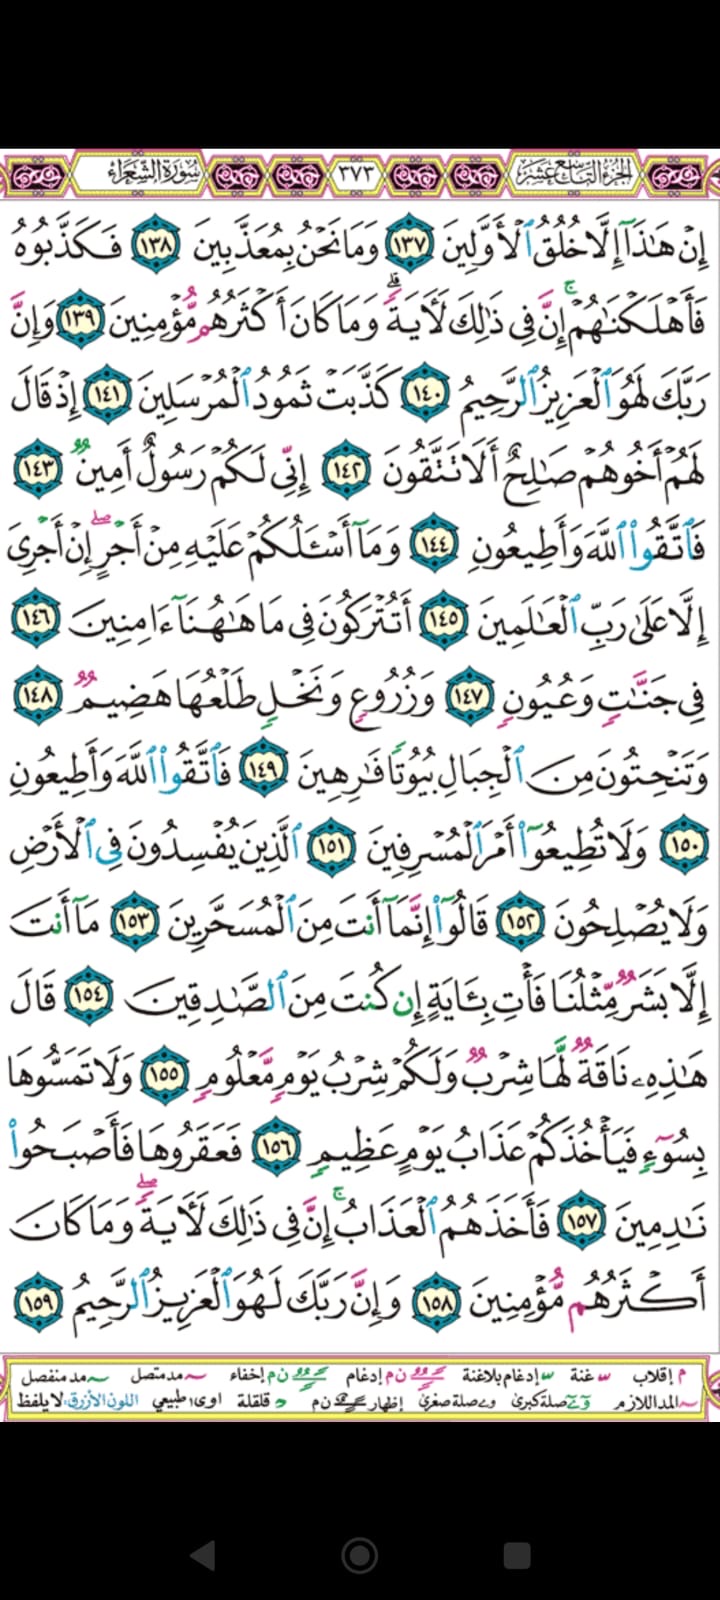 الجزء التاسع عشر ٣٧٣ سورة الشعراء
إِنْ هَٰذَآ إِلَّا خُلُقُ ٱلْأَوَّلِينَ ١٣٧ وَمَا نَحْنُ بِمُعَذَّبِينَ ١٣٨ فَكَذَّبُوهُ
فَأَهْلَكْنَٰهُمْ ۚ إِنَّ فِى ذَٰلِكَ لَأٓيَةً ۖ وَمَا كَانَ أَكْثَرُهُم مُّؤْمِنِينَ ١٣٩ وَإِنَّ
رَبَّكَ لَهُوَ ٱلْعَزِيزُ ٱلرَّحِيمُ ١٤٠ كَذَّبَتْ ثَمُودُ ٱلْمُرْسَلِينَ ١٤١ إِذْ قَالَ
لَهُمْ أَخُوهُمْ صَٰلِحٌ أَلَا تَتَّقُونَ ١٤٢ إِنِّى لَكُمْ رَسُولٌ أَمِينٌ ١٤٣
فَٱتَّقُوا۟ ٱللَّهَ وَأَطِيعُونِ ١٤٤ وَمَآ أَسْـَٔلُكُمْ عَلَيْهِ مِنْ أَجْرٍ ۖ إِنْ أَجْرِىَ
إِلَّا عَلَىٰ رَبِّ ٱلْعَٰلَمِينَ ١٤٥ أَتُتْرَكُونَ فِى مَا هَٰهُنَآ ءَامِنِينَ ١٤٦
فِى جَنَّٰتٍ وَعُيُونٍ ١٤٧ وَزُرُوعٍ وَنَخْلٍ طَلْعُهَا هَضِيمٌ ١٤٨
وَتَنْحِتُونَ مِنَ ٱلْجِبَالِ بُيُوتًا فَٰرِهِينَ ١٤٩ فَٱتَّقُوا۟ ٱللَّهَ وَأَطِيعُونِ
١٥٠ وَلَا تُطِيعُوٓا۟ أَمْرَ ٱلْمُسْرِفِينَ ١٥١ ٱلَّذِينَ يُفْسِدُونَ فِى ٱلْأَرْضِ
وَلَا يُصْلِحُونَ ١٥٢ قَالُوٓا۟ إِنَّمَآ أَنتَ مِنَ ٱلْمُسَحَّرِينَ ١٥٣ مَآ أَنتَ
إِلَّا بَشَرٌ مِّثْلُنَا فَأْتِ بِـَٔايَةٍ إِن كُنتَ مِنَ ٱلصَّٰدِقِينَ ١٥٤ قَالَ
هَٰذِهِۦ نَاقَةٌ لَّهَا شِرْبٌ وَلَكُمْ شِرْبُ يَوْمٍ مَّعْلُومٍ ١٥٥ وَلَا تَمَسُّوهَا
بِسُوٓءٍ فَيَأْخُذَكُمْ عَذَابُ يَوْمٍ عَظِيمٍ ١٥٦ فَعَقَرُوهَا فَأَصْبَحُوا۟
نَٰدِمِينَ ١٥٧ فَأَخَذَهُمُ ٱلْعَذَابُ ۚ إِنَّ فِى ذَٰلِكَ لَأٓيَةً ۖ وَمَا كَانَ
أَكْثَرُهُم مُّؤْمِنِينَ ١٥٨ وَإِنَّ رَبَّكَ لَهُوَ ٱلْعَزِيزُ ٱلرَّحِيمُ ١٥٩
م إقلاب غنة إدغام بلاغنة ن م إدغام ن م إخفاء مد متصل مد منفصل
المد اللازم صلة كبرى صلة صغرى إظهار ن م قلقلة اوى طبيعي اللون الأزرق لا يلفظ